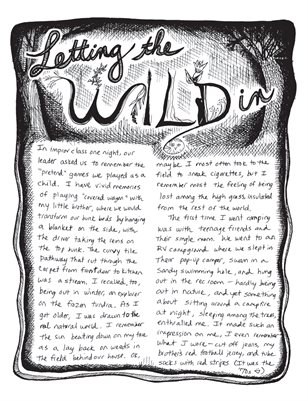 Letting the
WILD in
In improv class one night, our
leader asked us to remember the
"pretend" games we played as a
child. I have vivid memories
of playing "covered wagon" with
my little brother, where we would
transform our bunk beds by hanging
a blanket on the side, with
the driver taking the reins on
the top bunk. The curvy tile
pathway that cut through the
carpet from front door to kitchen
was a stream. I recalled, too,
being out in winter, an explorer
on the frozen tundra. As I
got older, I was drawn to the
real natural world. I remember
the sun beating down on my face
as a lay back on weeds in
the field behind our house. Or,
maybe I most often took to the
field to sneak cigarettes, but I
remember most the feeling of being
lost among the high grass, insulated
from the rest of the world.
The first time I went camping
was with teenage friends and
their single mom. We went to an
RV campground where we slept in
their pop-up camper, swam in a
sandy swimming hole, and hung
out in the rec room — hardly being
out in nature, and yet something
about sitting around a campfire
at night, sleeping among the trees,
enthralled me. It made such an
impression on me, I even remember
what I wore — cut off jeans, my
brother's red football jersey, and tube
socks with red stripes (it was the
'70s